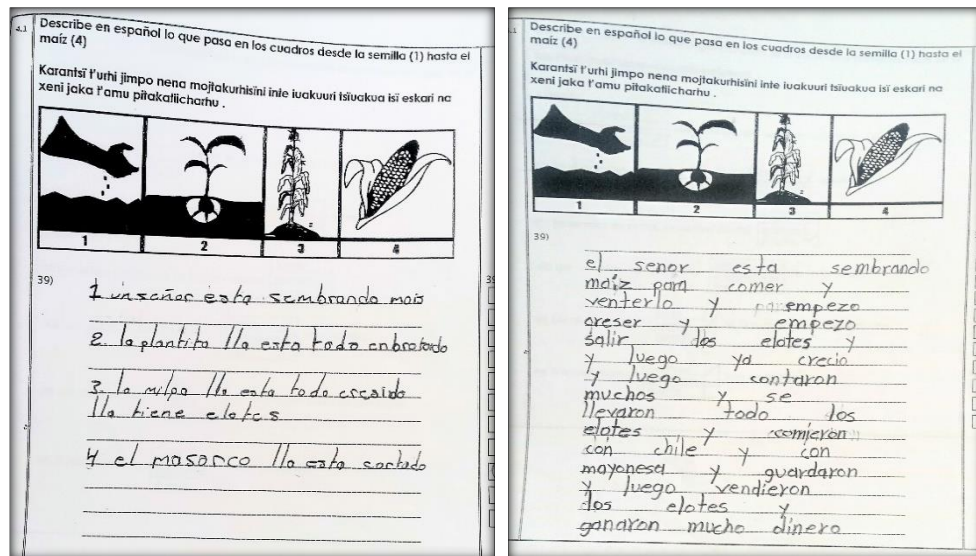 4.1 Describe en español lo que pasa en los cuadros desde la semilla (1) hasta el
maíz (4)
Karantsï t'urhi jimpo nena mojtakurhisïni inte iuakuuri tsïuakua isï eskari na
xeni jaka t'amu pitakatiicharhu .
1 2 3 4
39)
1 un señor esta sembrando mais
2. la plantita lla esta todo enbrotado
3. la milpa lla esta todo cresido
lla tiene elotes
4 el masorco lla esta cortado
.1 Describe en español lo que pasa en los cuadros desde la semilla (1) hasta el
maíz (4)
Karantsï t'urhi jimpo nena mojtakurhisïni inte iuakuuri tsïuakua isï eskari na
xeni jaka t'amu pitakatiicharhu .
1 2 3 4
39)
el senor esta sembrando
maiz para comer y
venterlo y empezo
creser y empezo
salir los elotes y
y luego ya crecio
y luego contaron
muchos y se
llevaron todo los
elotes y comieron
con chile y con
mayonesa y guardaron
y luego vendieron
los elotes y
ganaron mucho dinero